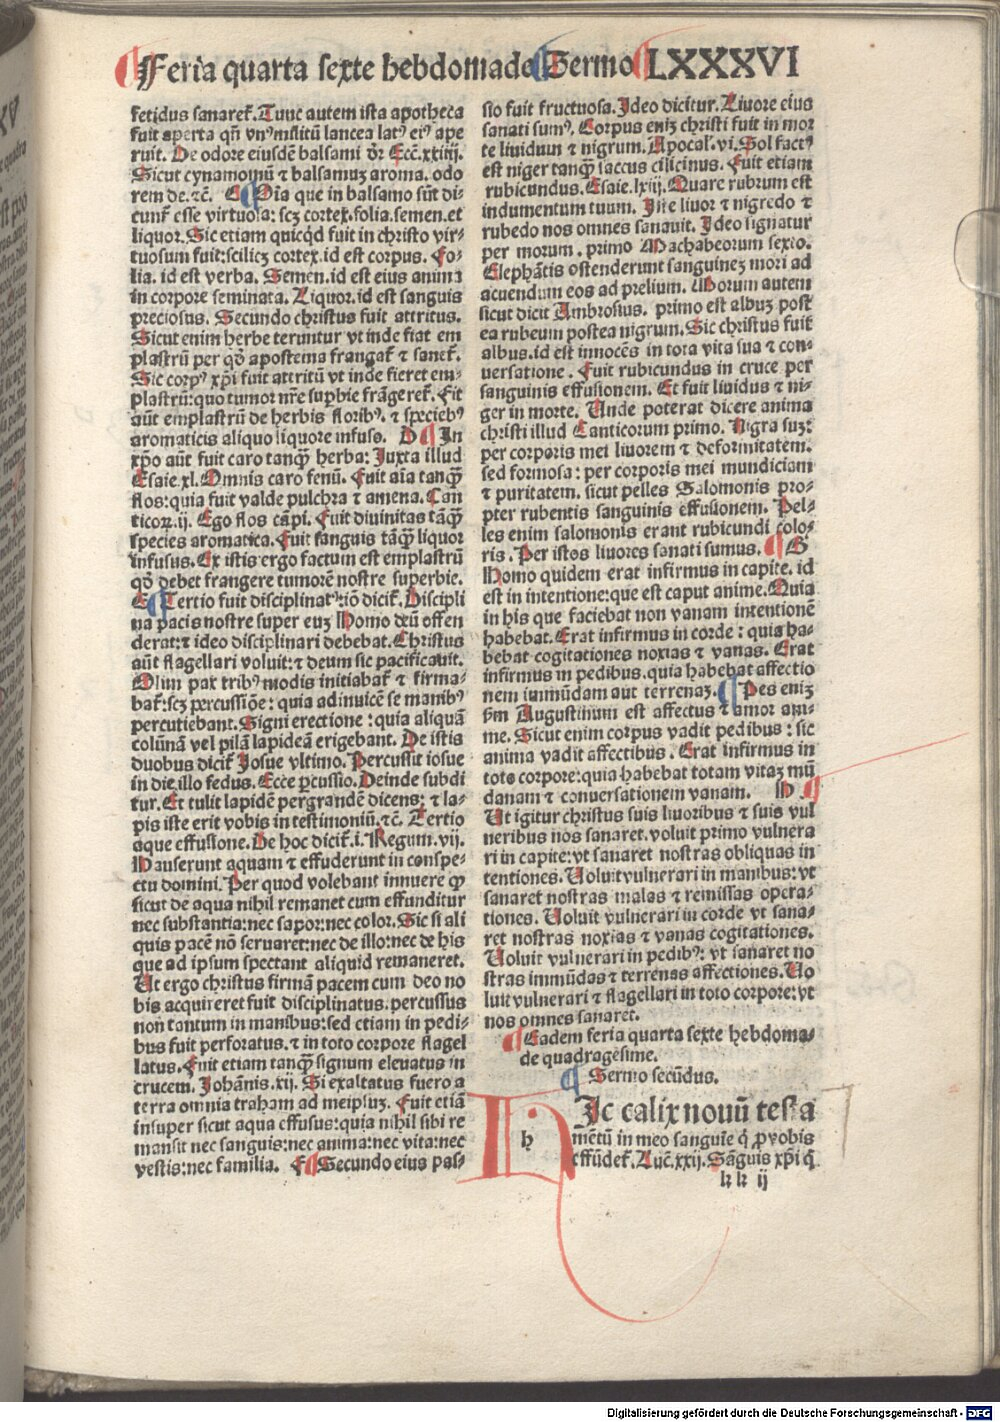 Feria quarta sexte hebdomade Sermo LXXXVI
fetidus sanaretˀ. Tunc autem ista apotheca
fuit aperta qn̄ vnꝰ militū lancea latꝰ eiꝰ ape
ruit. De odore eiusdē balsami dr̄ Ecc̄. xxiiij.
Sicut cynamomū ⁊ balsamuꝫ aroma. odo
rem de. ⁊c̄. C Oīa que in balsamo sūt di⸗
cunt̄ esse virtuosa: scꝫ cortex. folia. semen. et
liquor. Sic etiam quicq̇d fuit in christo vir⸗
tuosum fuit: scilicꝫ cortex. id est corpus. Fo⸗
lia. id est verba. Semen. id est eius anima
in corpore seminata. Liquor. id est sanguis
preciosus. Secundo christus fuit attritus.
Sicut enim herbe teruntur vt inde fiat em
plastrū per qd̄ apostema frangat̄ ⁊ sanet̄.
Sic corpꝰ xp̄i fuit attritū vt inde fieret em⸗
plastrū: quo tumor nr̄e supbie frāgeret̄. Fit
aūt emplastrū de herbis floribꝰ. ⁊ speciebꝰ
aromaticis aliquo liquore infuso. D In
xp̄o aūt fuit caro tanqꝫ herba: Juxta illud
Esaie. xl. Omnis caro fenū. Fuit aīa tanqꝫ
flos: quia fuit valde pulchra ⁊ amena. Can
ticoꝝ. ij. Ego flos cāpi. Fuit diuinitas tāqꝫ
species aromatica. Fuit sanguis tāqꝫ liquor
infusus. Ex istis ergo factum est emplastrū
qd̄ debet frangere tumorē nostre superbie.
E Tertio fuit disciplinatꝰ: iō dicit̄. Discipli
na pacis nostre super euꝫ Homo deū offen
derat: ⁊ ideo disciplinari debebat. Christus
aūt flagellari voluit: ⁊ deum sic pacificauit.
Olim pax tribꝰ modis initiabat̄ ⁊ firma⸗
bat̄: scꝫ percussiōe: quia adinuicē se manibꝰ
percutiebant. Signi erectione: quia aliquā
colūnā vel pilā lapideā erigebant. De istis
duobus dicit̄ Josue vltimo. Percussit iosue
in die illo fedus. Ecce ꝑcussio. Deinde subdi
tur. Et tulit lapidē pergrandē dicens: ⁊ la⸗
pis iste erit vobis in testimoniū. ⁊c̄. Tertio
aque effusione. De hoc dicit̄. i. Regum. vij.
Hauserunt aquam ⁊ effuderunt in conspe⸗
ctu domini. Per quod volebant innuere ꝙ
sicut de aqua nihil remanet cum effunditur
nec substantia: nec sapor: nec color. Sic si ali
quis pacē nō seruaret: nec de illo: nec de his
que ad ipsum spectant aliquid remaneret.
Ut ergo christus firmā pacem cum deo no
bis acquireret fuit disciplinatus. percussus
non tantum in manibus: sed etiam in pedi⸗
bus fuit perforatus. ⁊ in toto corpore flagel
latus. Fuit etiam tanqꝫ signum eleuatus in
crucem. Johānis. xij. Si exaltatus fuero a
terra omnia traham ad meipsuꝫ. Fuit etiā
insuper sicut aqua effusus: quia nihil sibi re
mansit nec sanguis: nec anima: nec vita: nec
vestis: nec familia. F Secundo eius pas⸗
sio fuit fructuosa. Ideo dicitur. Liuore eius
sanati sumꝰ. Corpus eniꝫ christi fuit in mor
te liuidum ⁊ nigrum. Apocal. vi. Sol factꝰ
est niger tanqꝫ saccus cilicinus. Fuit etiam
rubicundus. Esaie. lxiij. Quare rubrum est
indumentum tuum. Iste liuor ⁊ nigredo ⁊
rubedo nos omnes sanauit. Ideo signatur
per morum. primo Machabeorum sexto.
Elephātis ostenderunt sanguineꝫ mori ad
acuendum eos ad prelium. Morum autem
sicut dicit Ambrosius. primo est albuꝫ post
ea rubeum postea nigrum. Sic christus fuit
albus. id est innocēs in tota vita sua ⁊ con⸗
uersatione. Fuit rubicundus in cruce per
sanguinis effusionem. Et fuit liuidus ⁊ ni⸗
ger in morte. Unde poterat dicere anima
christi illud Canticorum primo. Nigra suꝫ:
per corporis mei liuorem ⁊ deformitatem.
sed formosa: per corporis mei mundiciam
⁊ puritatem. sicut pelles Salomonis pro⸗
pter rubentis sanguinis effusionem. Pel⸗
les enim salomonis erant rubicundi colo⸗
ris. Per istos liuores sanati sumus. G
Homo quidem erat infirmus in capite. id
est in intentione: que est caput anime. Quia
in his que faciebat non vanam intentionē
habebat. Erat infirmus in corde: quia ha⸗
bebat cogitationes noxias ⁊ vanas. Erat
infirmus in pedibus. quia habebat affectio
nem immūdam aut terrenaꝫ. Pes eniꝫ
ẜm Augustinum est affectus ⁊ amor ani⸗
me. Sicut enim corpus vadit pedibus: sic
anima vadit affectibus. Erat infirmus in
toto corpore: quia habebat totam vitaꝫ mū
danam ⁊ conuersationem vanam. H
Ut igitur christus suis liuoribus ⁊ suis vul
neribus nos sanaret. voluit primo vulnera
ri in capite: vt sanaret nostras obliquas in
tentiones. Uoluit vulnerari in manibus: vt
sanaret nostras malas ⁊ remissas opera⸗
tiones. Uoluit vulnerari in corde vt sana⸗
ret nostras noxias ⁊ vanas cogitationes.
Uoluit vulnerari in pedibꝰ: vt sanaret no
stras immūdas ⁊ terrenas affectiones. Uo
luit vulnerari ⁊ flagellari in toto corpore: vt
nos omnes sanaret.
Eadem feria quarta sexte hebdoma⸗
de quadragesime.
Sermo secūdus.
h Ic calix nouū testa
mētū in meo sanguīe q̇ ꝓ vobis
effūdet̄. Luc̄. xxij. Sāguis xp̄i q̇
kk ij
Digitalisierung gefördert durch die Deutsche Forschungsgemeinschaft - DFG